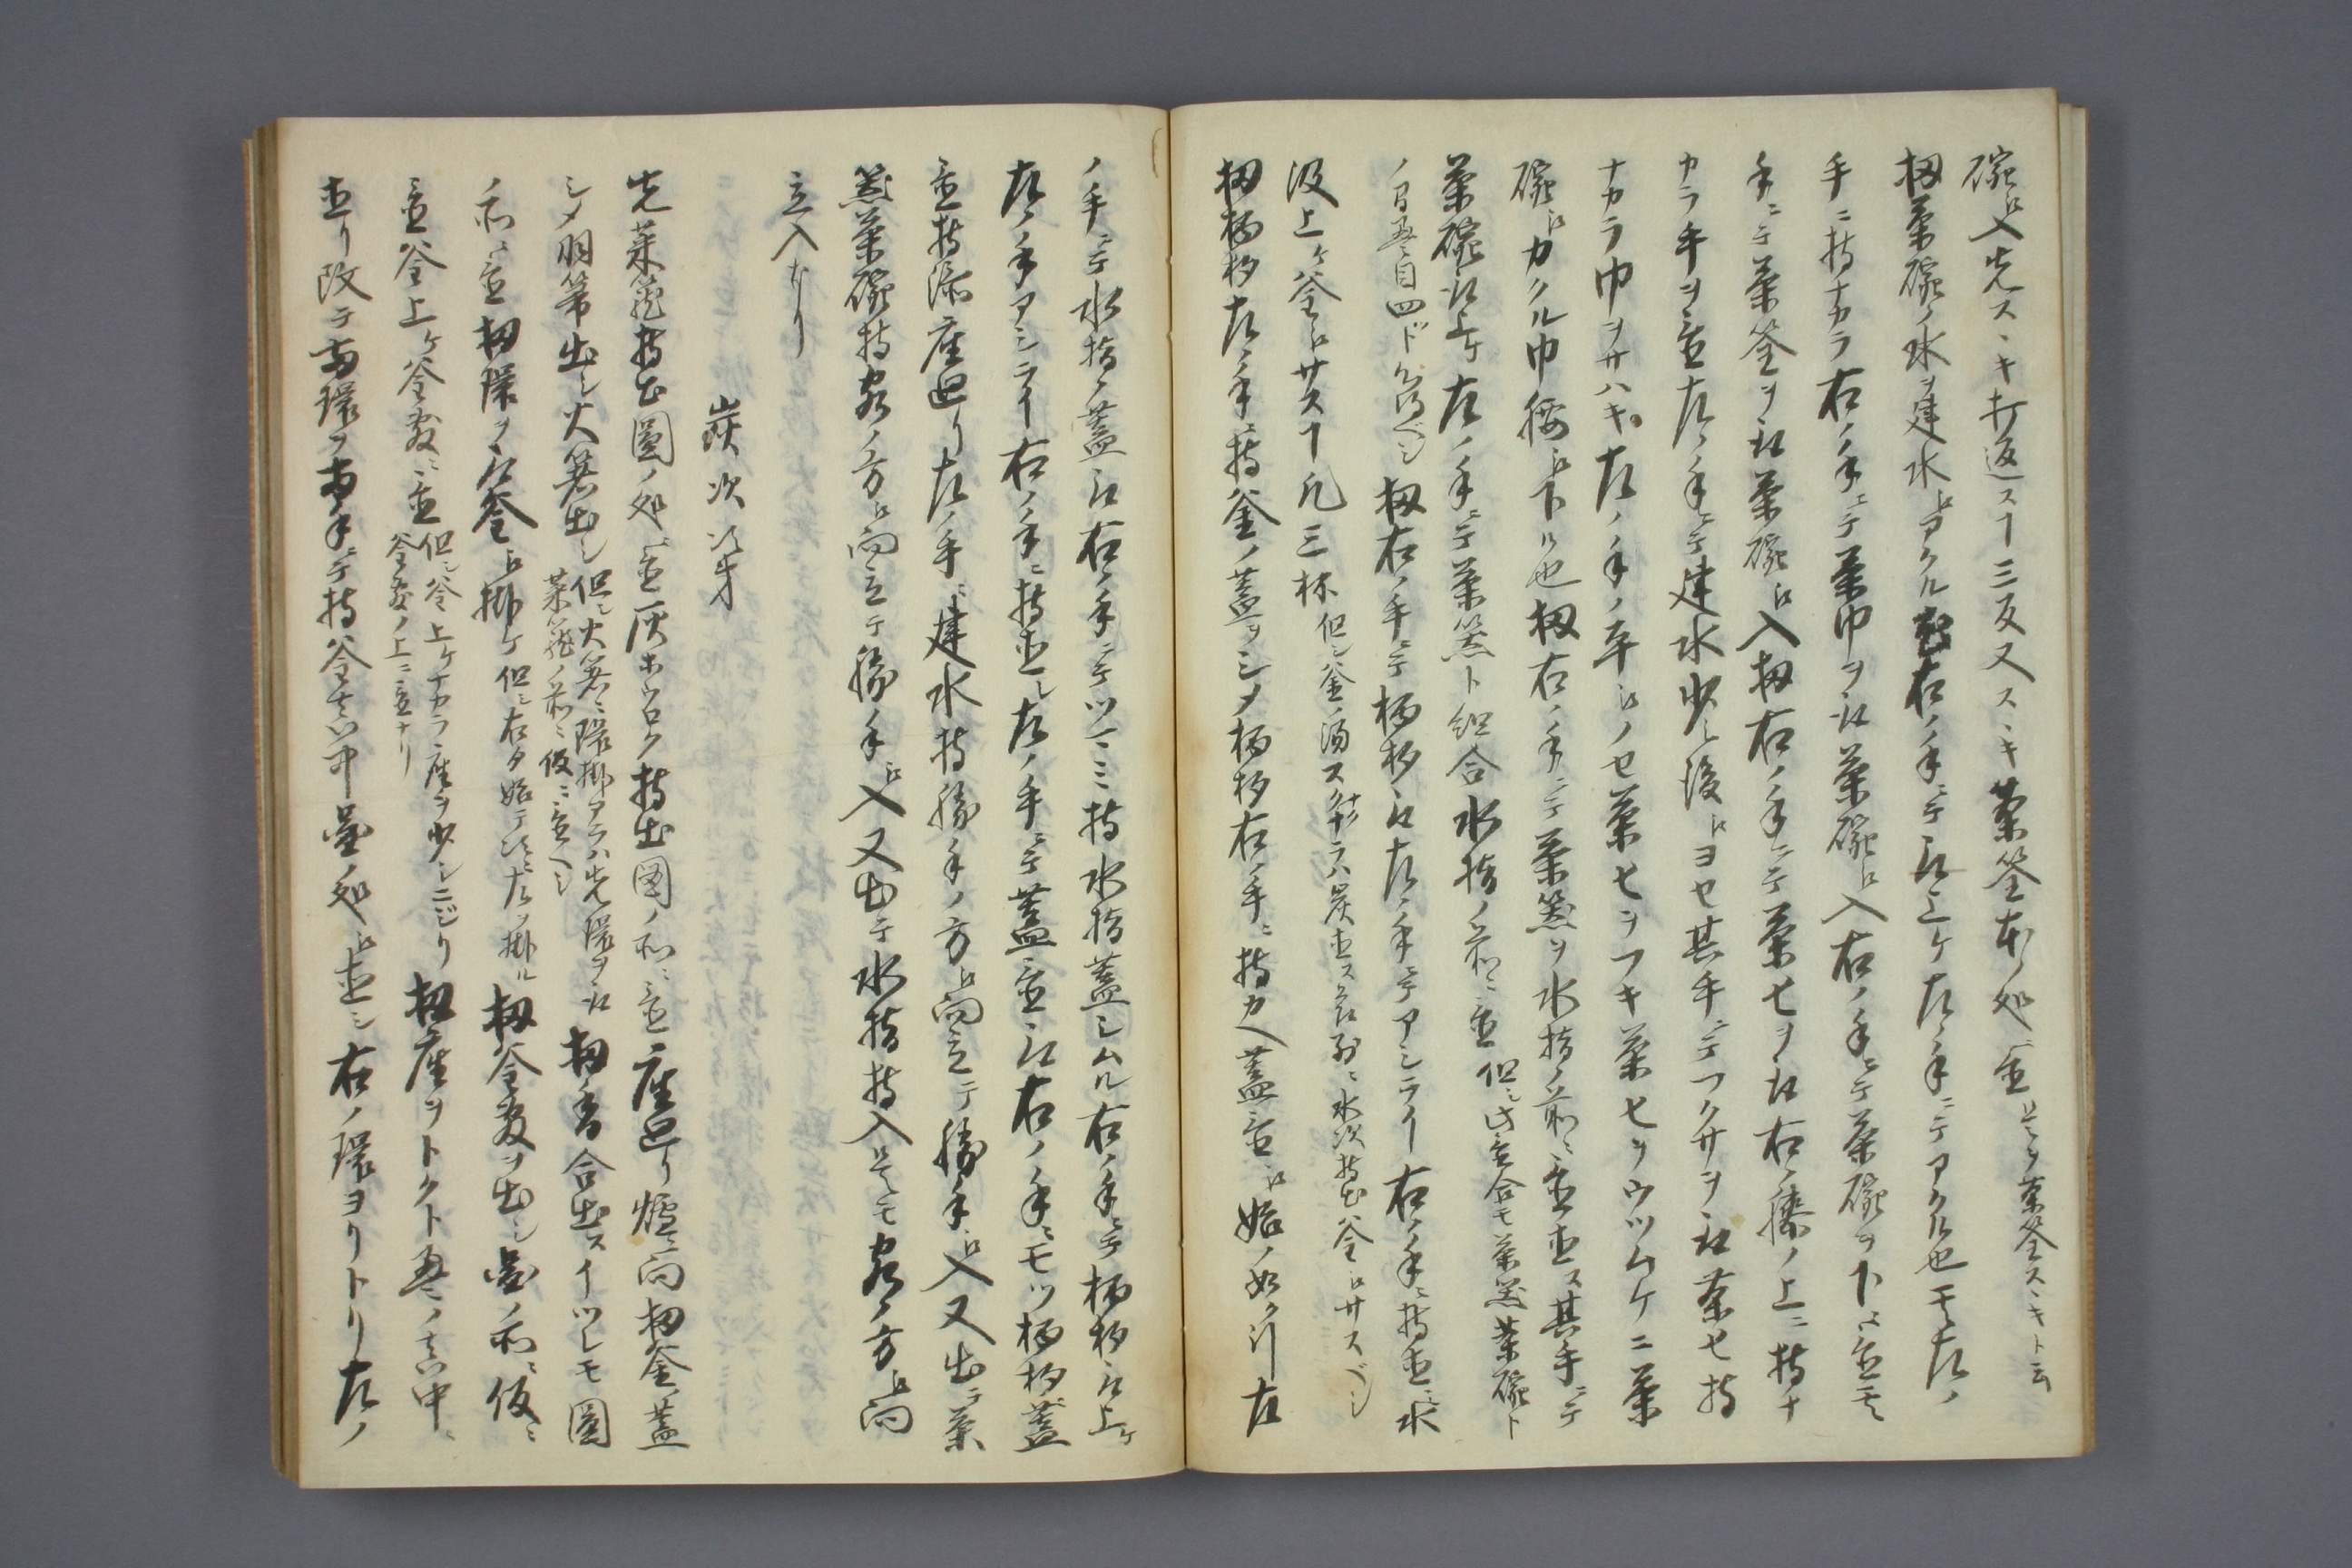 碗ニ入先スヽキ打返スヿ三反又スヽキ茶筌本ノ処ニ置是ヲ茶筌スヽキト云
扨茶碗ノ水ヲ建水ヘアクル 右ノ手ニテ取上ケ左ノ手ニテアクル也其左ノ
手ニ持ナカラ右ノ手ニテ茶巾ヲ取茶碗ヘ入右ノ手ニテ茶碗ヲ下ニ置其
手ニテ茶筌ヲ取茶碗ヘ入扨右ノ手ニテ茶七ヲ取右ノ膝ノ上ニ持ナ
カラ手ヲ置左ノ手ニテ建水少シ後ヘヨセ其手ニテフクサヲ取茶七持
ナカラ巾ヲサハキ左ノ手ノ平ヘノセ茶七ヲフキ茶七ヲウツムケニ茶
碗ヘカクル巾腰ヘ下ル也扨右ノ手ニテ茶箋ヲ水指ノ前ニ置直ス其手ニテ
茶碗取上ケ左ノ手ニテ茶箋ト組合水指ノ前ニ置 但シ此置合モ茶箋茶碗ト
ノ間畳ノ目四ド 扨右ノ手ニテ柄杓取左ノ手ニテアシライ右ノ手ニ持直シ水
汲上ケ釜ヘサスヿ凡三杯 但シ釜ノ湯スクナクハ炭直ス前ニ水次持出釜ヘサスベシ
扨柄杓左ノ手ニ持釜ノ蓋ヲシメ柄杓右ノ手ニ持カヘ蓋置ヘ始ノ如ク引左
ノ手ニテ水指ノ蓋取右ノ手ニテツマミ持水指蓋シムル右ノ手ニテ柄杓取上ケ
左ノ手アシライ右ノ手ニ持直シ左ノ手ニテ蓋置取右ノ手ニモツ柄杓蓋
置持添座廻リ左ノ手ニ建水持勝手ノ方ヘ向立テ勝手ヘ入又出テ茶
箋茶碗持客ノ方ヘ向立テ勝手ヘ入又出テ水指持入是モ客ノ方ヘ向
立入ナリ
炭次次第
先菜籠持出圖ノ処ニ置灰ホウロク持出図ノ如ニ置座廻リ爐ニ向扨釜ノ蓋
シメ羽箒出シ火箸出シ 但シ火箸ニ環掛アラハ先環ヲ取 菜籠ノ前ニ仮ニ置ヘシ 扨香合出スイツレモ圖
ノ如ニ置扨環ヲ取釜ヘ掛ケ 但シ右ヨリ始テ次ニ左ヲ掛ル 扨釜敷ヲ出シ圖ノ如ニ仮ニ
置釜上ケ釜敷ニ置 但シ釜上ケナカラ座ヲ少シニジリ 釜敷ノ上ニ置ナリ 扨座ヲトクト畳ノ真中ニ
直リ改テ両環ヲ両手ニテ持釜真中畳ノ処ヘ直シ右ノ環ヨリトリ左ノ